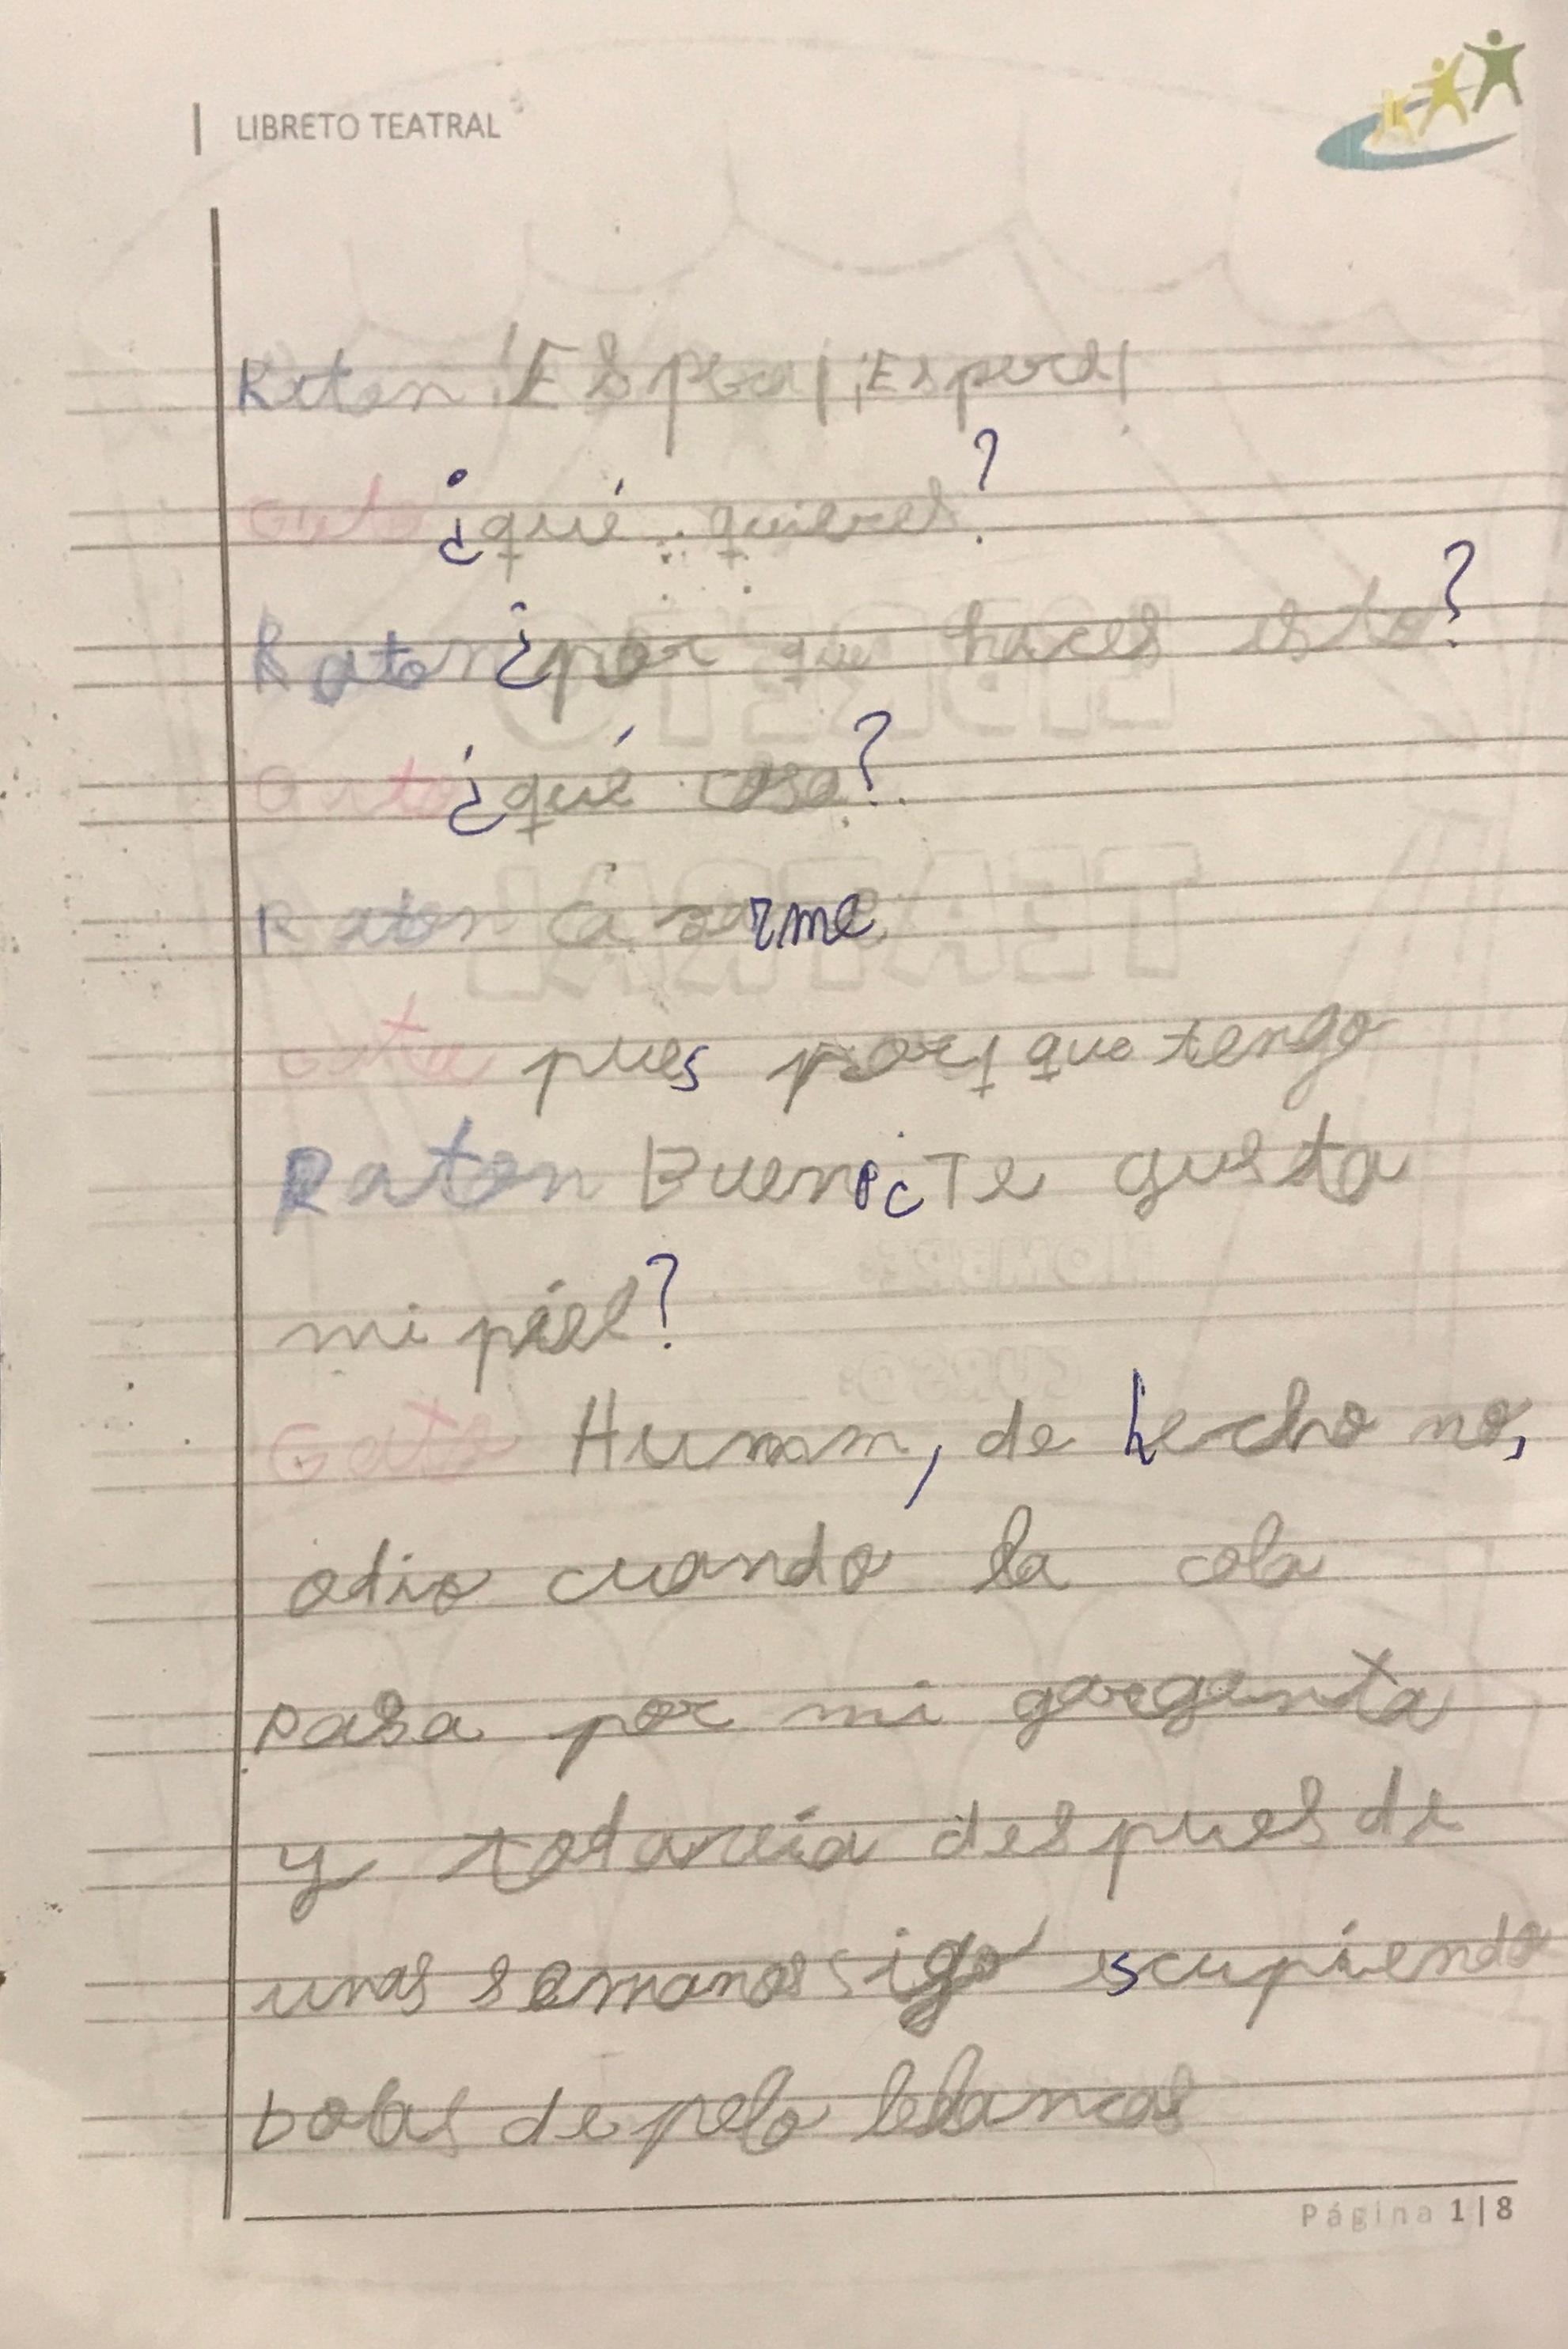 LIBRETO TEATRAL
Raton ¡Espera! ¡Espera!
Gato ¿qué quieres?
Raton ¿por que haces esto?
Gato ¿qué cosa?
Raton
Gato pues porque tengo
Raton Bueno ¿Te gusta
mi piel?
Gato Humm, de hecho no,
odio cuando la cola
pasa por mi garganta
y todavia despues de
unas semanas sigo escupiendo
bolas de pelo blancas
Página 1|8